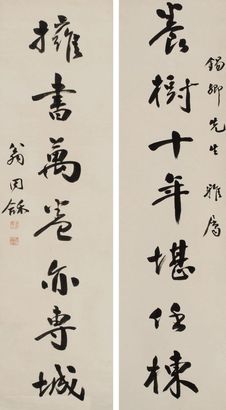 錫卿先生雅屬
養樹十年堪任棟
擁書萬卷亦專城
翁同龢